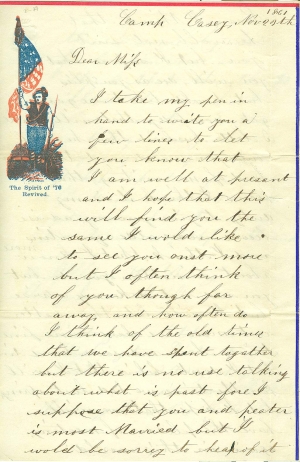 1861
Camp Casey, Nov 24th
Dear Miss
I take my pen in
hand to write you a
few lines to let
you know that
I am well at presant
and I hope that this
will find you the
same I wold like
to see you onst more
but I often think
of you though far
away, and how often do
I think of the old times
that we have spent together
but there is no use talking
about what is past fore I
suppose that you and peater
is most Married but I
would be sorrey to hear of it
The Spirit of '76
Revived.